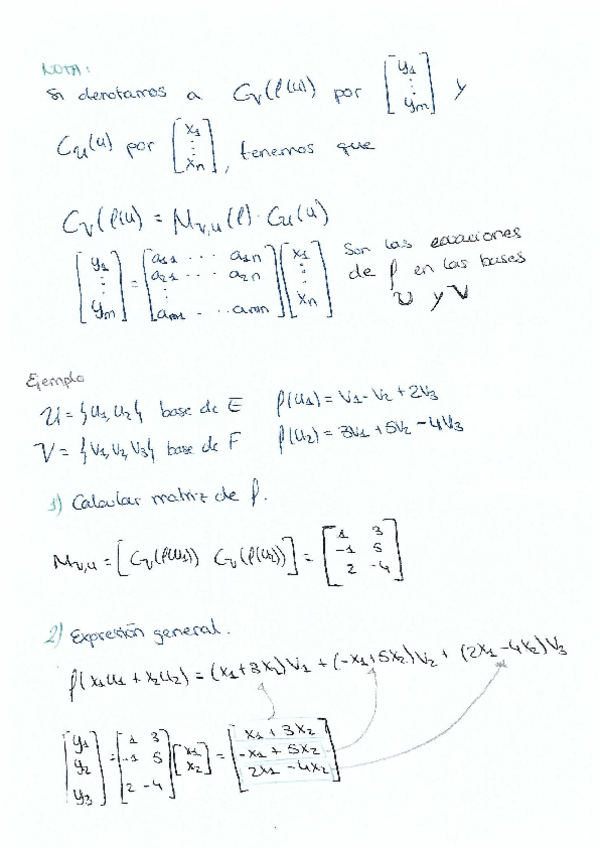 NOTA:
Si denotamos a C_V(f(u)) por [y1 ⋮ ym] y
C_U(u) por [x1 ⋮ xn], tenemos que
C_V(f(u)) = M_V,U(f) · C_U(u)
[y1 ⋮ ym] = [a11 ... a1n a21 ... a2n ⋮ am1 - ... amn] [x1 ⋮ xn] Son las ecuaciones
de f en las bases
U y V
Ejemplo
U = {u1, u2} base de E f(u1) = v1 - v2 + 2v3
V = {v1, v2, v3} base de F f(u2) = 3v1 + 5v2 - 4v3
1) Calcular matriz de f.
M_V,U = [C_V(f(u1)) C_V(f(u2))] = [1 3 -1 5 2 -4]
2) Expresión general.
f(x1u1 + x2u2) = (x1+3x2)v1 + (-x1+5x2)v2 + (2x1-4x2)v3
[y1 y2 y3] = [1 3 -1 5 2 -4] [x1 x2] = [x1 + 3x2 -x1 + 5x2 2x1 - 4x2]